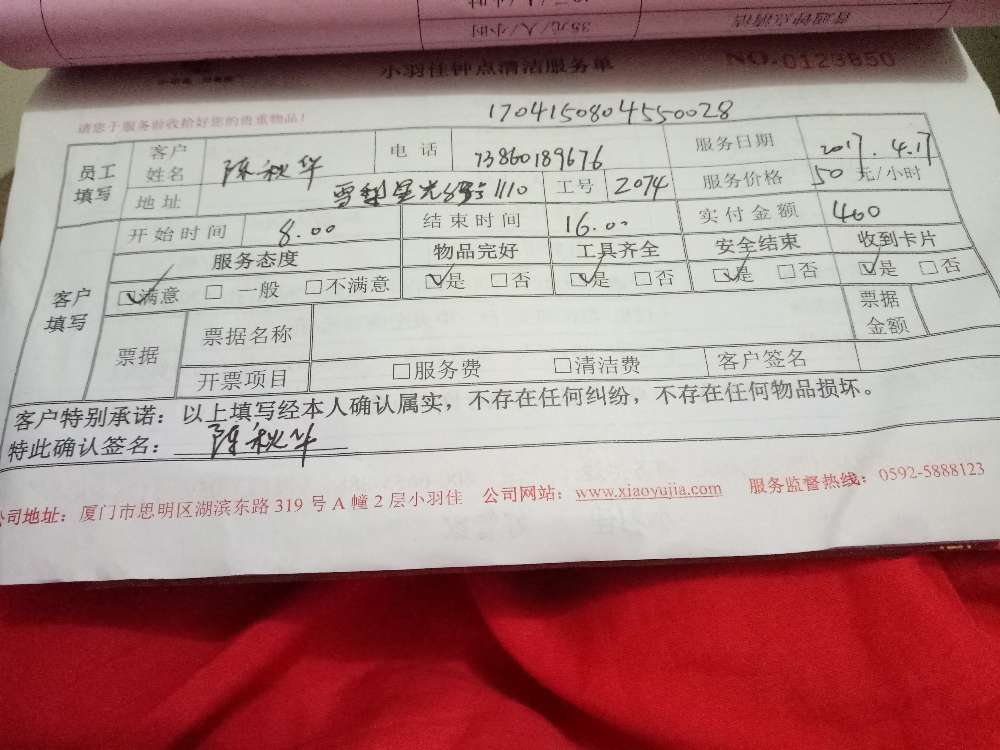 35元/人/小时
普通钟点清洁
小羽佳钟点清洁服务单
NO.0123850
请您于服务前收拾好您的贵重物品!
1704150804550028
员工填写 客户姓名 陈秋华 电话 13860189676 服务日期 2017.4.17
地址 雪梨星光8号1110 工号 2074 服务价格 50元/小时
客户填写 开始时间 8.00 结束时间 16.00 实付金额 400
服务态度 物品完好 工具齐全 安全结束 收到卡片
☑满意 □ 一般 □不满意 ☑是 □否 ☑是 □否 ☑是 □否 ☑是 □否
票据 票据名称 票据金额
开票项目 □服务费 □清洁费 客户签名
客户特别承诺：以上填写经本人确认属实，不存在任何纠纷，不存在任何物品损坏。
特此确认签名：陈秋华
公司地址：厦门市思明区湖滨东路 319 号 A 幢 2 层小羽佳 公司网站：www.xiaoyujia.com 服务监督热线：0592-5888123